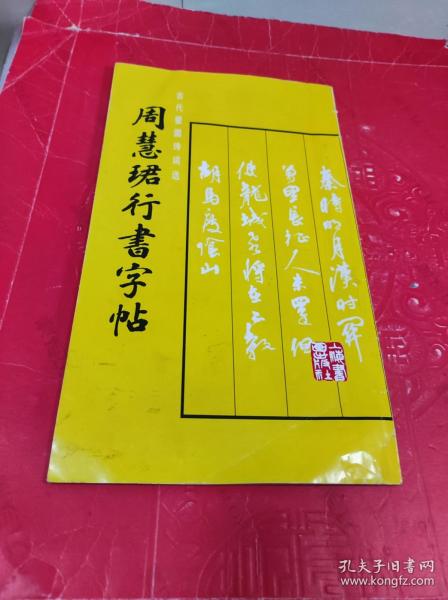 周慧珺行書字帖
古代愛國詩詞选
秦時明月漢时関
萬里長征人未還但
使龍城飛將在不教
胡馬度陰山
上海書画出版社
孔夫子旧书网